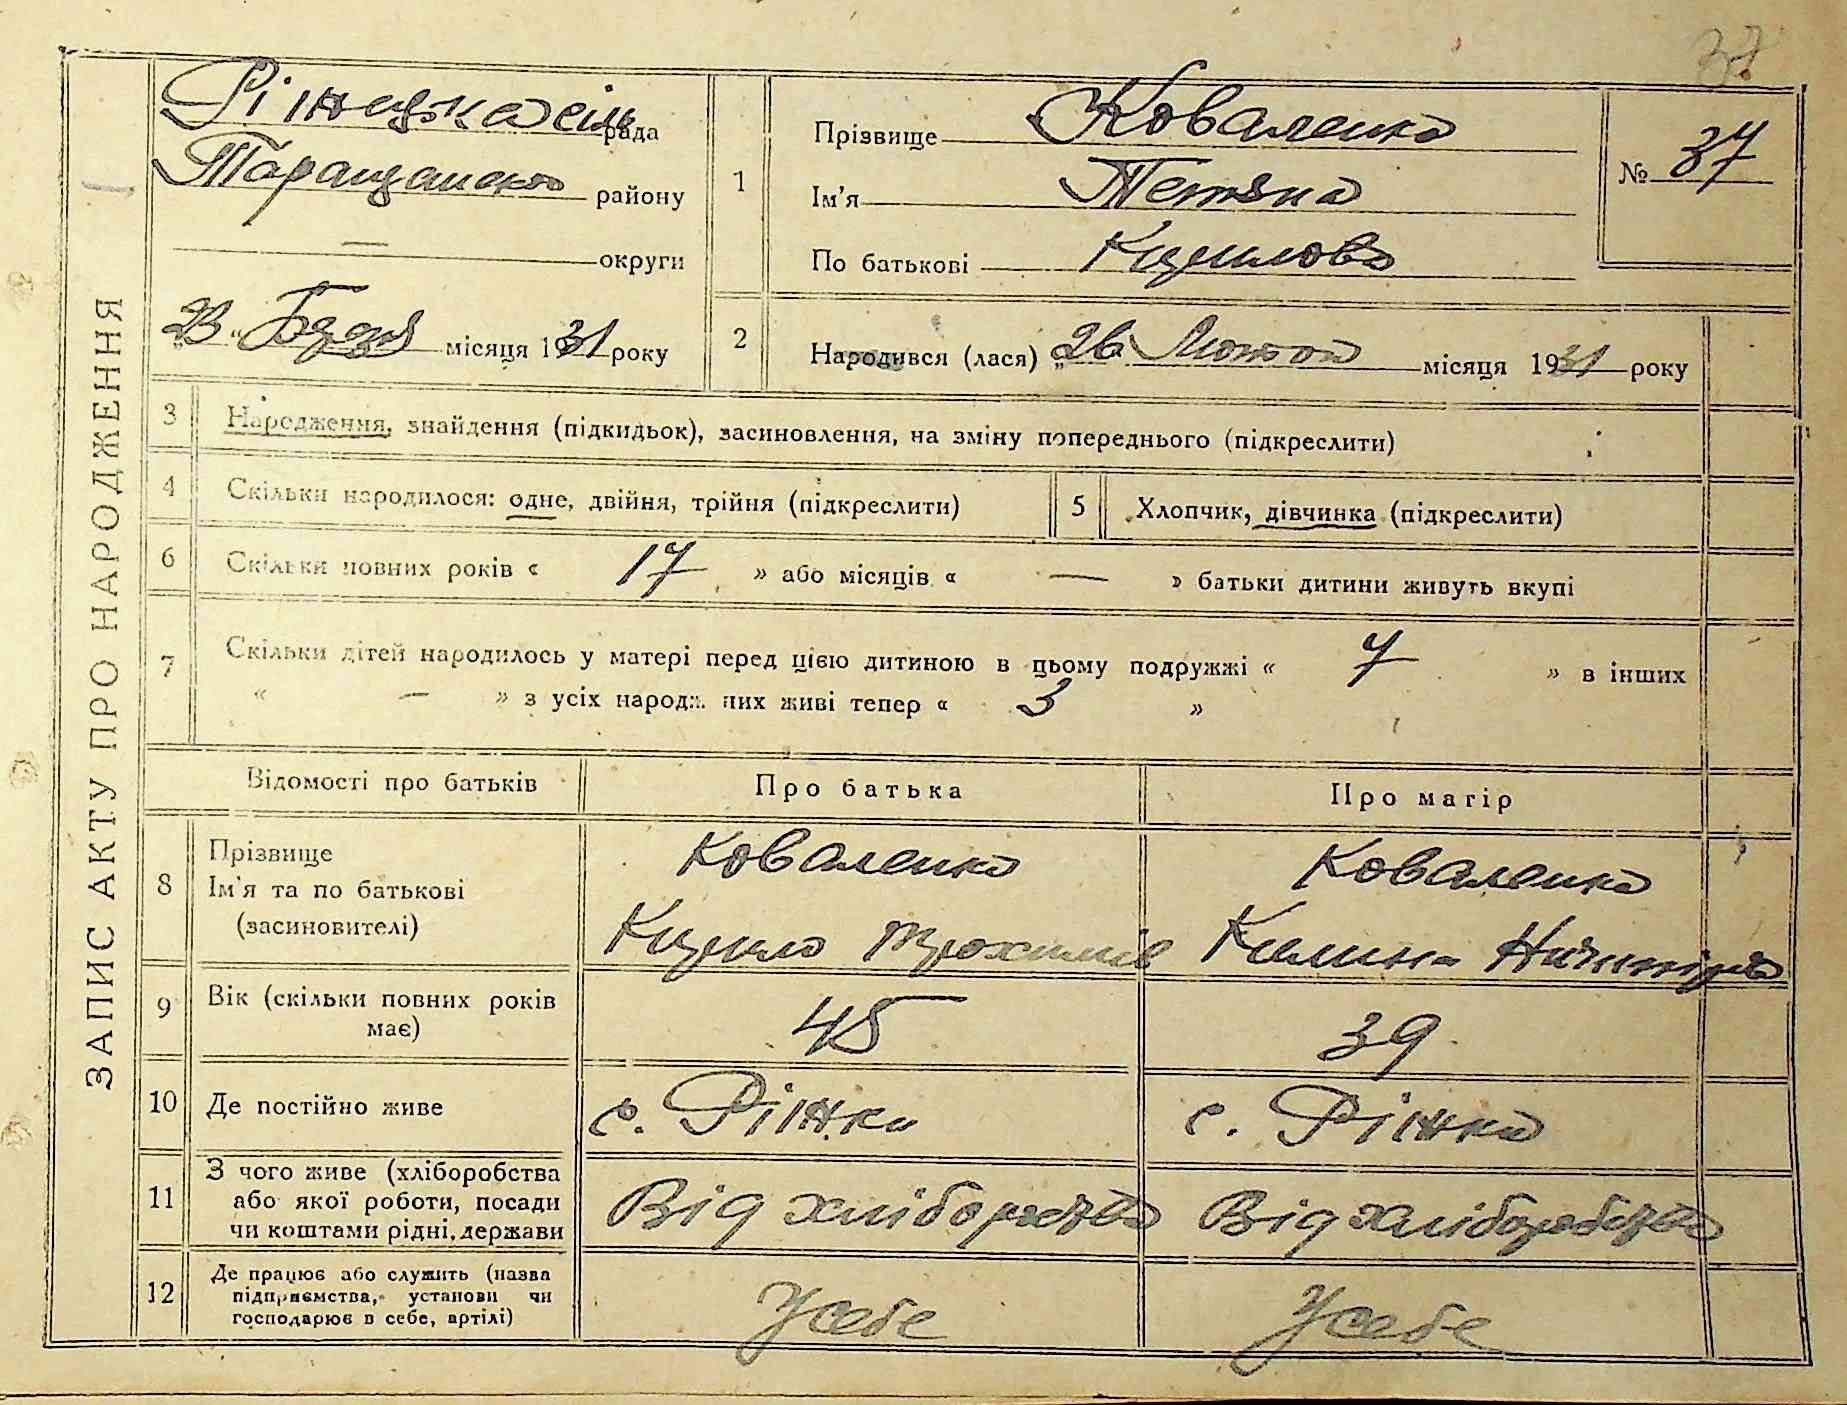 37
ЗАПИС АКТУ ПРО НАРОДЖЕННЯ
рада
Таращансько району
— округи
„23“ місяця 1931 року
1
Прізвище Коваленко
Ім'я Тетяна
По батькові Кирилова
№ 37
2 Народився (лася) „26 Лютого місяця 1931 року
3 Народження, знайдення (підкидьок), засиновлення, на зміну попереднього (підкреслити)
4 Скільки народилося: одне, двійня, трійня (підкреслити)
5 Хлопчик, дівчинка (підкреслити)
6 Скільки повних років « 17 » або місяців « — » батьки дитини живуть вкупі
7 Скільки дітей народилось у матері перед цією дитиною в цьому подружжі « 7 » в інших
« — » з усіх народж. них живі тепер « 3 »
Відомості про батьків Про батька Про матір
8 Прізвище
Ім'я та по батькові
(засиновителі)
Коваленко
Кирило Трохимів
Коваленко
Килина
9 Вік (скільки повних років
має)
45
39
10 Де постійно живе
с. Ріжки
с. Ріжки
11 З чого живе (хліборобства
або якої роботи, посади
чи коштами рідні, держави
Від хліборобства
Від хліборобства
12 Де працює або служить (назва
підприємства, установи чи
господарює в себе, артілі)
У себе
У себе